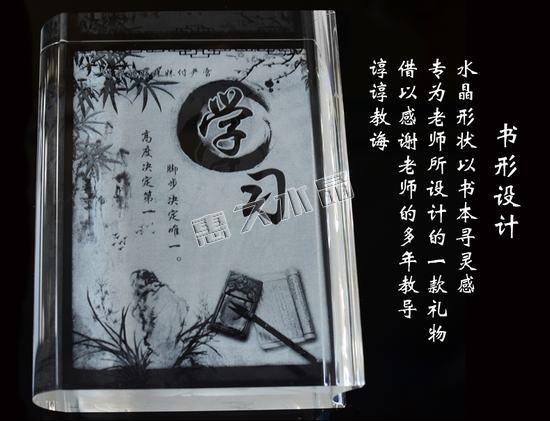 书形设计
水晶形状以书本寻灵感
专为老师所设计的一款礼物
借以感谢老师的多年教导
谆谆教诲
学习
高度决定第一
脚步决定唯一。
惠久水晶